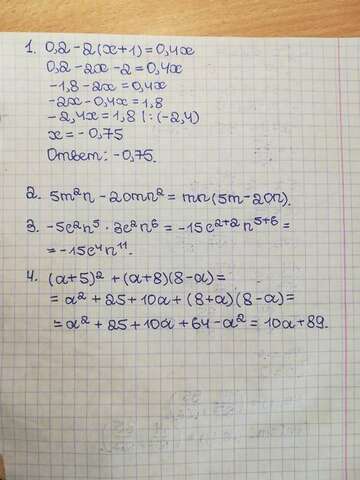 1. 0,2 - 2(x+1) = 0,4x
0,2 - 2x - 2 = 0,4x
-1,8 - 2x = 0,4x
-2x - 0,4x = 1,8
-2,4x = 1,8 | : (-2,4)
x = -0,75
Ответ: -0,75.
2. 5m²n - 20mn² = mn(5m - 20n).
3. -5c²n⁵ · 3c²n⁶ = -15c²⁺²n⁵⁺⁶ =
= -15c⁴n¹¹.
4. (a+5)² + (a+8)(8-a) =
= a² + 25 + 10a + (8+a)(8-a) =
= a² + 25 + 10a + 64 - a² = 10a + 89.